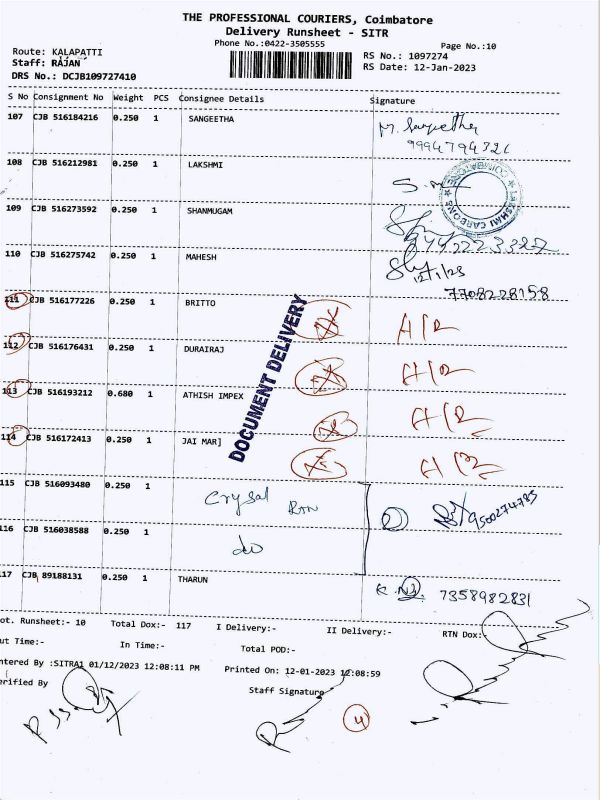 THE PROFESSIONAL COURIERS, Coimbatore
Delivery Runsheet - SITR
Phone No.:0422-3505555
Page No.:10
Route: KALAPATTI
Staff: RAJAN
DRS No.: DCJB109727410
RS No.: 1097274
RS Date: 12-Jan-2023
S No Consignment No Weight PCS Consignee Details Signature
107 CJB 516184216 0.250 1 SANGEETHA
9994794321
108 CJB 516212981 0.250 1 LAKSHMI
LAKSHMI CARBONS COIMBATORE
109 CJB 516273592 0.250 1 SHANMUGAM
110 CJB 516275742 0.250 1 MAHESH
12/1/23
7708228158
111 CJB 516177226 0.250 1 BRITTO
112 CJB 516176431 0.250 1 DURAIRAJ
113 CJB 516193212 0.680 1 ATHISH IMPEX
114 CJB 516172413 0.250 1 JAI MAR]
DOCUMENT DELIVERY
115 CJB 516093480 0.250 1 Crysal RTN 9500274785
116 CJB 516038588 0.250 1 do
17 CJB 89188131 0.250 1 THARUN 7358982831
ot. Runsheet:- 10 Total Dox:- 117 I Delivery:- II Delivery:- RTN Dox:-
ut Time:- In Time:- Total POD:-
ntered By :SITRA1 01/12/2023 12:08:11 PM Printed On: 12-01-2023 12:08:59
erified By Staff Signature